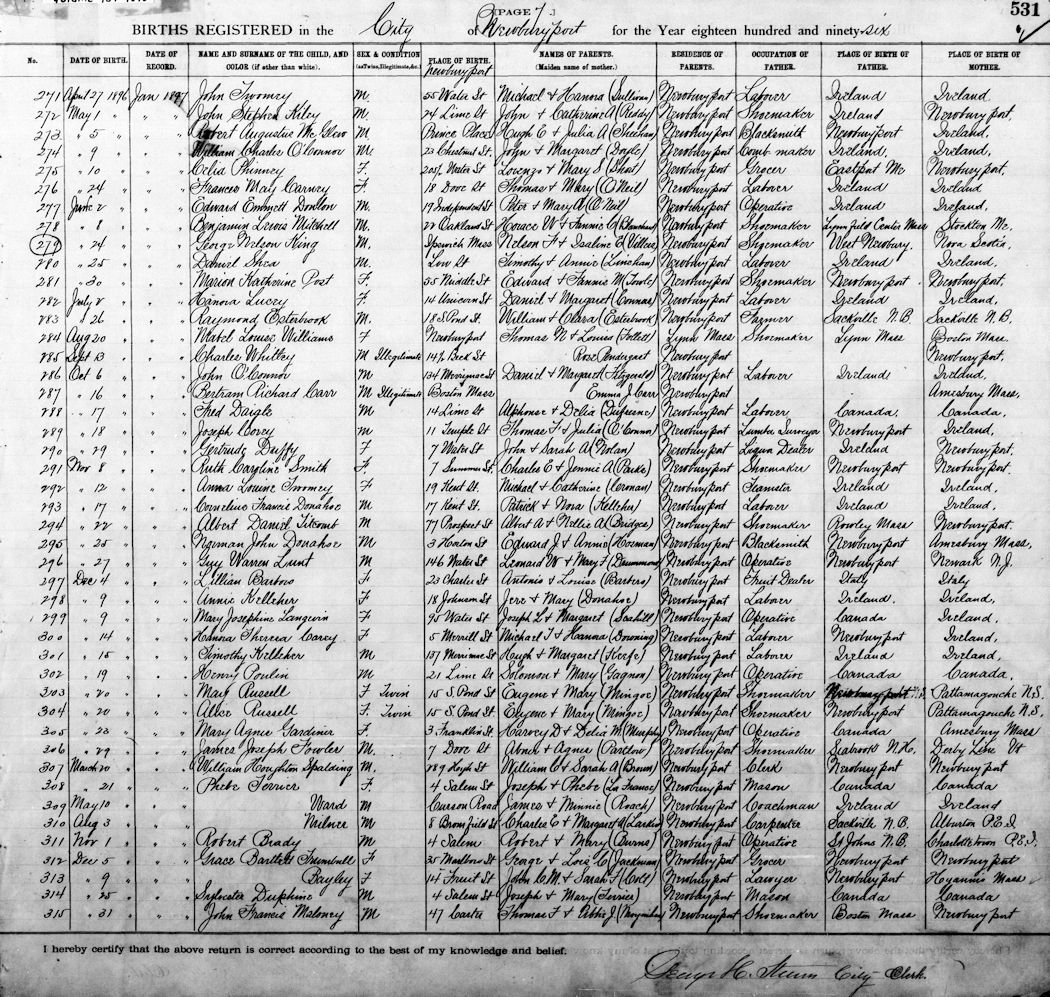 [PAGE 7.]
531
BIRTHS REGISTERED in the City of Newburyport for the Year eighteen hundred and ninety six
No. DATE OF BIRTH. DATE OF RECORD. NAME AND SURNAME OF THE CHILD, AND COLOR (if other than white). SEX & CONDITION (as Twins, Illegitimate, &c.) PLACE OF BIRTH. NAMES OF PARENTS. (Maiden name of mother.) RESIDENCE OF PARENTS. OCCUPATION OF FATHER. PLACE OF BIRTH OF FATHER. PLACE OF BIRTH OF MOTHER.
Newburyport
271 April 27 1896 Jan 1897 John Twomey M. 55 Water St Michael & Hanora (Sullivan) Newburyport Laborer Ireland Ireland
272 May 1 " " " John Stephen Kiley M 24 Lime St John & Catherine A (Reddy) Newburyport Shoemaker Ireland Newburyport.
273 " 5 " " " Robert Augustine Mc Glew M Prince Place Hugh C & Julia A (Sheehan) Newburyport Blacksmith Newburyport Ireland,
274 " 9 " " " William Charles O'Connor M 23 Chestnut St. John & Margaret (Doyle) Newburyport Comb maker Ireland, Ireland,
275 " 10 " " " Celia Phinney F. 205½ Water St Lorenzo & Mary S (Short) Newburyport Grocer Eastport Me Newburyport,
276 " 24 " " " Frances May Carney F. 18 Dove St Thomas & Mary (O'Neil) Newburyport Laborer Ireland Ireland
277 June 2 " " " Edward Emmett Donlon M. 19 Independent St Peter & Mary A (O'Neil) Newburyport Operative Ireland Ireland,
278 " 8 " " " Benjamin Lewis Mitchell M 22 Oakland St Horace W & Fannie C (Blanchard) Newburyport Shoemaker Lynnfield Center Mass Stockton Me,
279 " 24 " " " George Nelson King M. Ipswich Mass Nelson F & Isaline E Newburyport Shoemaker West Newbury, Nova Scotia,
280 " 25 " " " Daniel Shea M Low St Timothy & Annie (Linehan) Newburyport Laborer Ireland Ireland,
281 " 30 " " " Marion Katherine Post F. 55 Middle St Edward & Fannie M (Towle) Newburyport Shoemaker Newburyport Newburyport,
282 July 2 " " " Hanora Lucey F 14 Unicorn St Daniel & Margaret (Connor) Newburyport Laborer Ireland Ireland,
283 " 26 " " " Raymond Esterbrook M 18 S Pond St. William & Clara (Esterbrook) Newburyport Farmer Sackville N.B. Sackville N.B,
284 Aug 20 " " " Mabel Louise Williams F Newburyport Thomas N & Louise (Follett) Lynn Mass Shoemaker Lynn Mass Boston Mass.
285 Sept 13 " " " Charles Whitley M Illegitimate 14½ Beck St Rose Pendergast Newburyport Newburyport,
286 Oct 6 " " " John O'Connor M 134 Merrimac St Daniel & Margaret (Fitzgerald) Newburyport Laborer Ireland Ireland,
287 " 16 " " " Bertram Richard Carr M Illegitimate Boston Mass Emma J. Carr Newburyport Amesbury Mass,
288 " 17 " " " Fred Daigle M 14 Lime St Alphonse & Delia (Dufresne) Newburyport Laborer Canada, Canada,
289 " 18 " " " Joseph Corey M 11 Temple St Thomas F & Julia (O'Connor) Newburyport Lumber Surveyor Newburyport Ireland,
290 " 29 " " " Gertrude Duffy F 7 Water St John & Sarah A (Nolan) Newburyport Liquor Dealer Ireland Newburyport,
291 Nov 8 " " " Ruth Caroline Smith F. 7 Summer St. Charles E & Jennie A (Parke) Newburyport Shoemaker Newburyport Newburyport,
292 " 12 " " " Anna Louise Twomey F 19 Kent St. Michael & Catherine (Cronan) Newburyport Teamster Ireland Ireland,
293 " 17 " " " Cornelius Francis Donahoe M 17 Kent St. Patrick & Nora (Kelleher) Newburyport Laborer Ireland Ireland,
294 " 22 " " " Albert Daniel Titcomb M 77 Prospect St Albert A & Nellie A (Bridges) Newburyport Shoemaker Rowley Mass Newburyport,
295 " 25 " " " Norman John Donahoe M 3 Horton St Edward J & Annie (Noonan) Newburyport Blacksmith Newburyport Amesbury Mass,
296 " 27 " " " Guy Warren Lunt M 146 Water St Leonard W & Mary F (Drummond) Newburyport Operative Newburyport Newark N.J.
297 Dec 4 " " " Lillian Barbow F 23 Charles St Antonio & Louise (Barbero) Newburyport Fruit Dealer Italy Italy
298 " 9 " " " Annie Kelleher F 18 Johnson St Jere & Mary (Donahoe) Newburyport Laborer Ireland, Ireland,
299 " 9 " " " Mary Josephine Langevin F 95 Water St Joseph L & Margaret Newburyport Operative Canada Ireland,
300 " 14 " " " Hanora Theresa Carey F 5 Merrill St Michael T & Hanna (Downing) Newburyport Laborer Newburyport Ireland,
301 " 15 " " " Timothy Kelleher M 137 Merrimac St Hugh & Margaret (Keefe) Newburyport Laborer Ireland Ireland,
302 " 19 " " " Henry Poulin M 21 Lime St Solomon & Mary (Gagnon) Newburyport Operative Canada Canada,
303 " 20 " " " May Russell F Twin 15 S. Pond St Eugene & Mary (Mingoe) Newburyport Shoemaker Newburyport Pattamagouche N.S.
304 " 20 " " " Alice Russell F. Twin 15 S. Pond St Eugene & Mary (Mingoe) Newburyport Shoemaker Newburyport Pattamagouche N.S,
305 " 23 " " " Mary Agnes Gardiner F. 3 Franklin St Harvey D & Delia M (Murphy) Newburyport Operative Canada Amesbury Mass
306 " 29 " " " James Joseph Fowler M. 7 Dove St Abner & Agnes (Parslow) Newburyport Shoemaker Seabrook N.H. Derby Line Vt
307 March 20 " " " William Houghton Spalding M. 289 High St William C & Sarah A (Brown) Newburyport Clerk Newburyport Newburyport
308 " 21 " " " Phebe Terrier F. 4 Salem St Joseph & Phebe (La France) Newburyport Mason Canada Canada
309 May 10 " " " Ward M Curson Road James & Minnie (Roach) Newburyport Coachman Ireland Ireland
310 Aug 3 " " " Milner M 8 Bromfield St Charles E & Margaret A (Larkin) Newburyport Carpenter Sackville N.B. Alburton P.E.I.
311 Nov 1 " " " Robert Brady M 4 Salem Robert & Mary (Burns) Newburyport Operative St Johns N.B. Charlottetown P.E.I.
312 Dec 5 " " " Grace Bartlett Trumbull F 25 Marlboro St George & Lois C (Jackman) Newburyport Grocer Newburyport Newburyport
313 " 9 " " " Bayley F 14 Fruit St John C.M. & Sarah F (Colt) Newburyport Lawyer Newburyport Hyannis Mass
314 " 25 " " " Sylvester Duphine M 4 Salem St Joseph & Mary (Terrier) Newburyport Mason Canada Canada
315 " 31 " " " John Francis Maloney M 47 Carter Thomas F & Abbie J. (Moynihan) Newburyport Shoemaker Boston Mass Newburyport
I hereby certify that the above return is correct according to the best of my knowledge and belief.
George H. Stevens City Clerk.